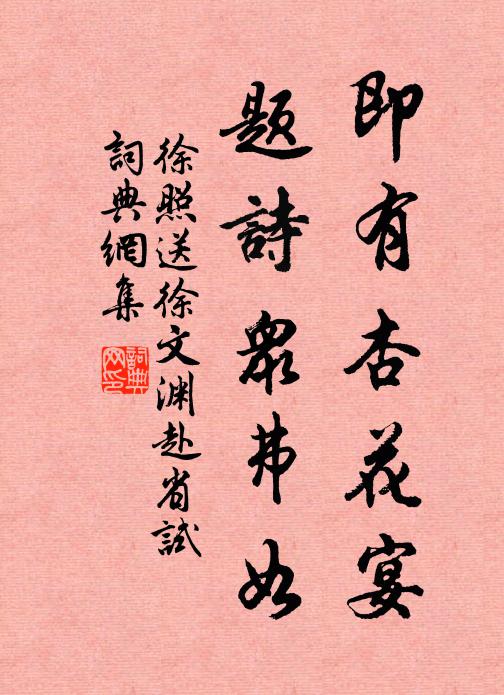 即有杏花宴
題詩眾弗如
徐照送徐文渊赴省試
詞典網集
詞典網印